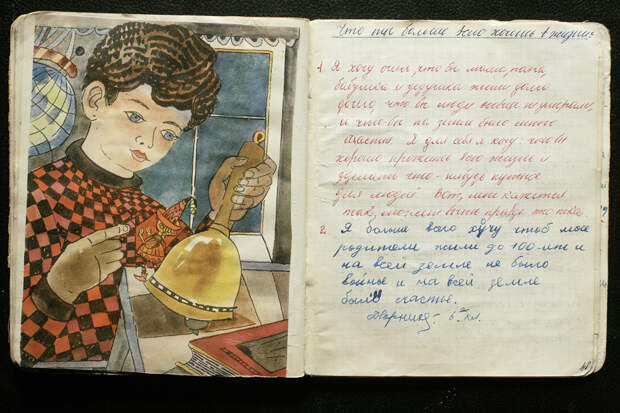 Что ты больше всего хочешь в жизни?
1. Я хочу очень, что бы мама, папа,
бабушка и дедушка жили долго
долго, что бы люди вообще не умирали,
и что-бы на земле было много
счастья. Я для себя хочу что бы
хорошо прожить всю жизнь и
сделать что-нибудь нужное
для людей вот, мне кажется
так, может быть правда не
2. Я больше всего хочу чтоб мои
родители жили до 100-лет и
на всей земле не было
войны и на всей земле
было счастье.
6 кл.